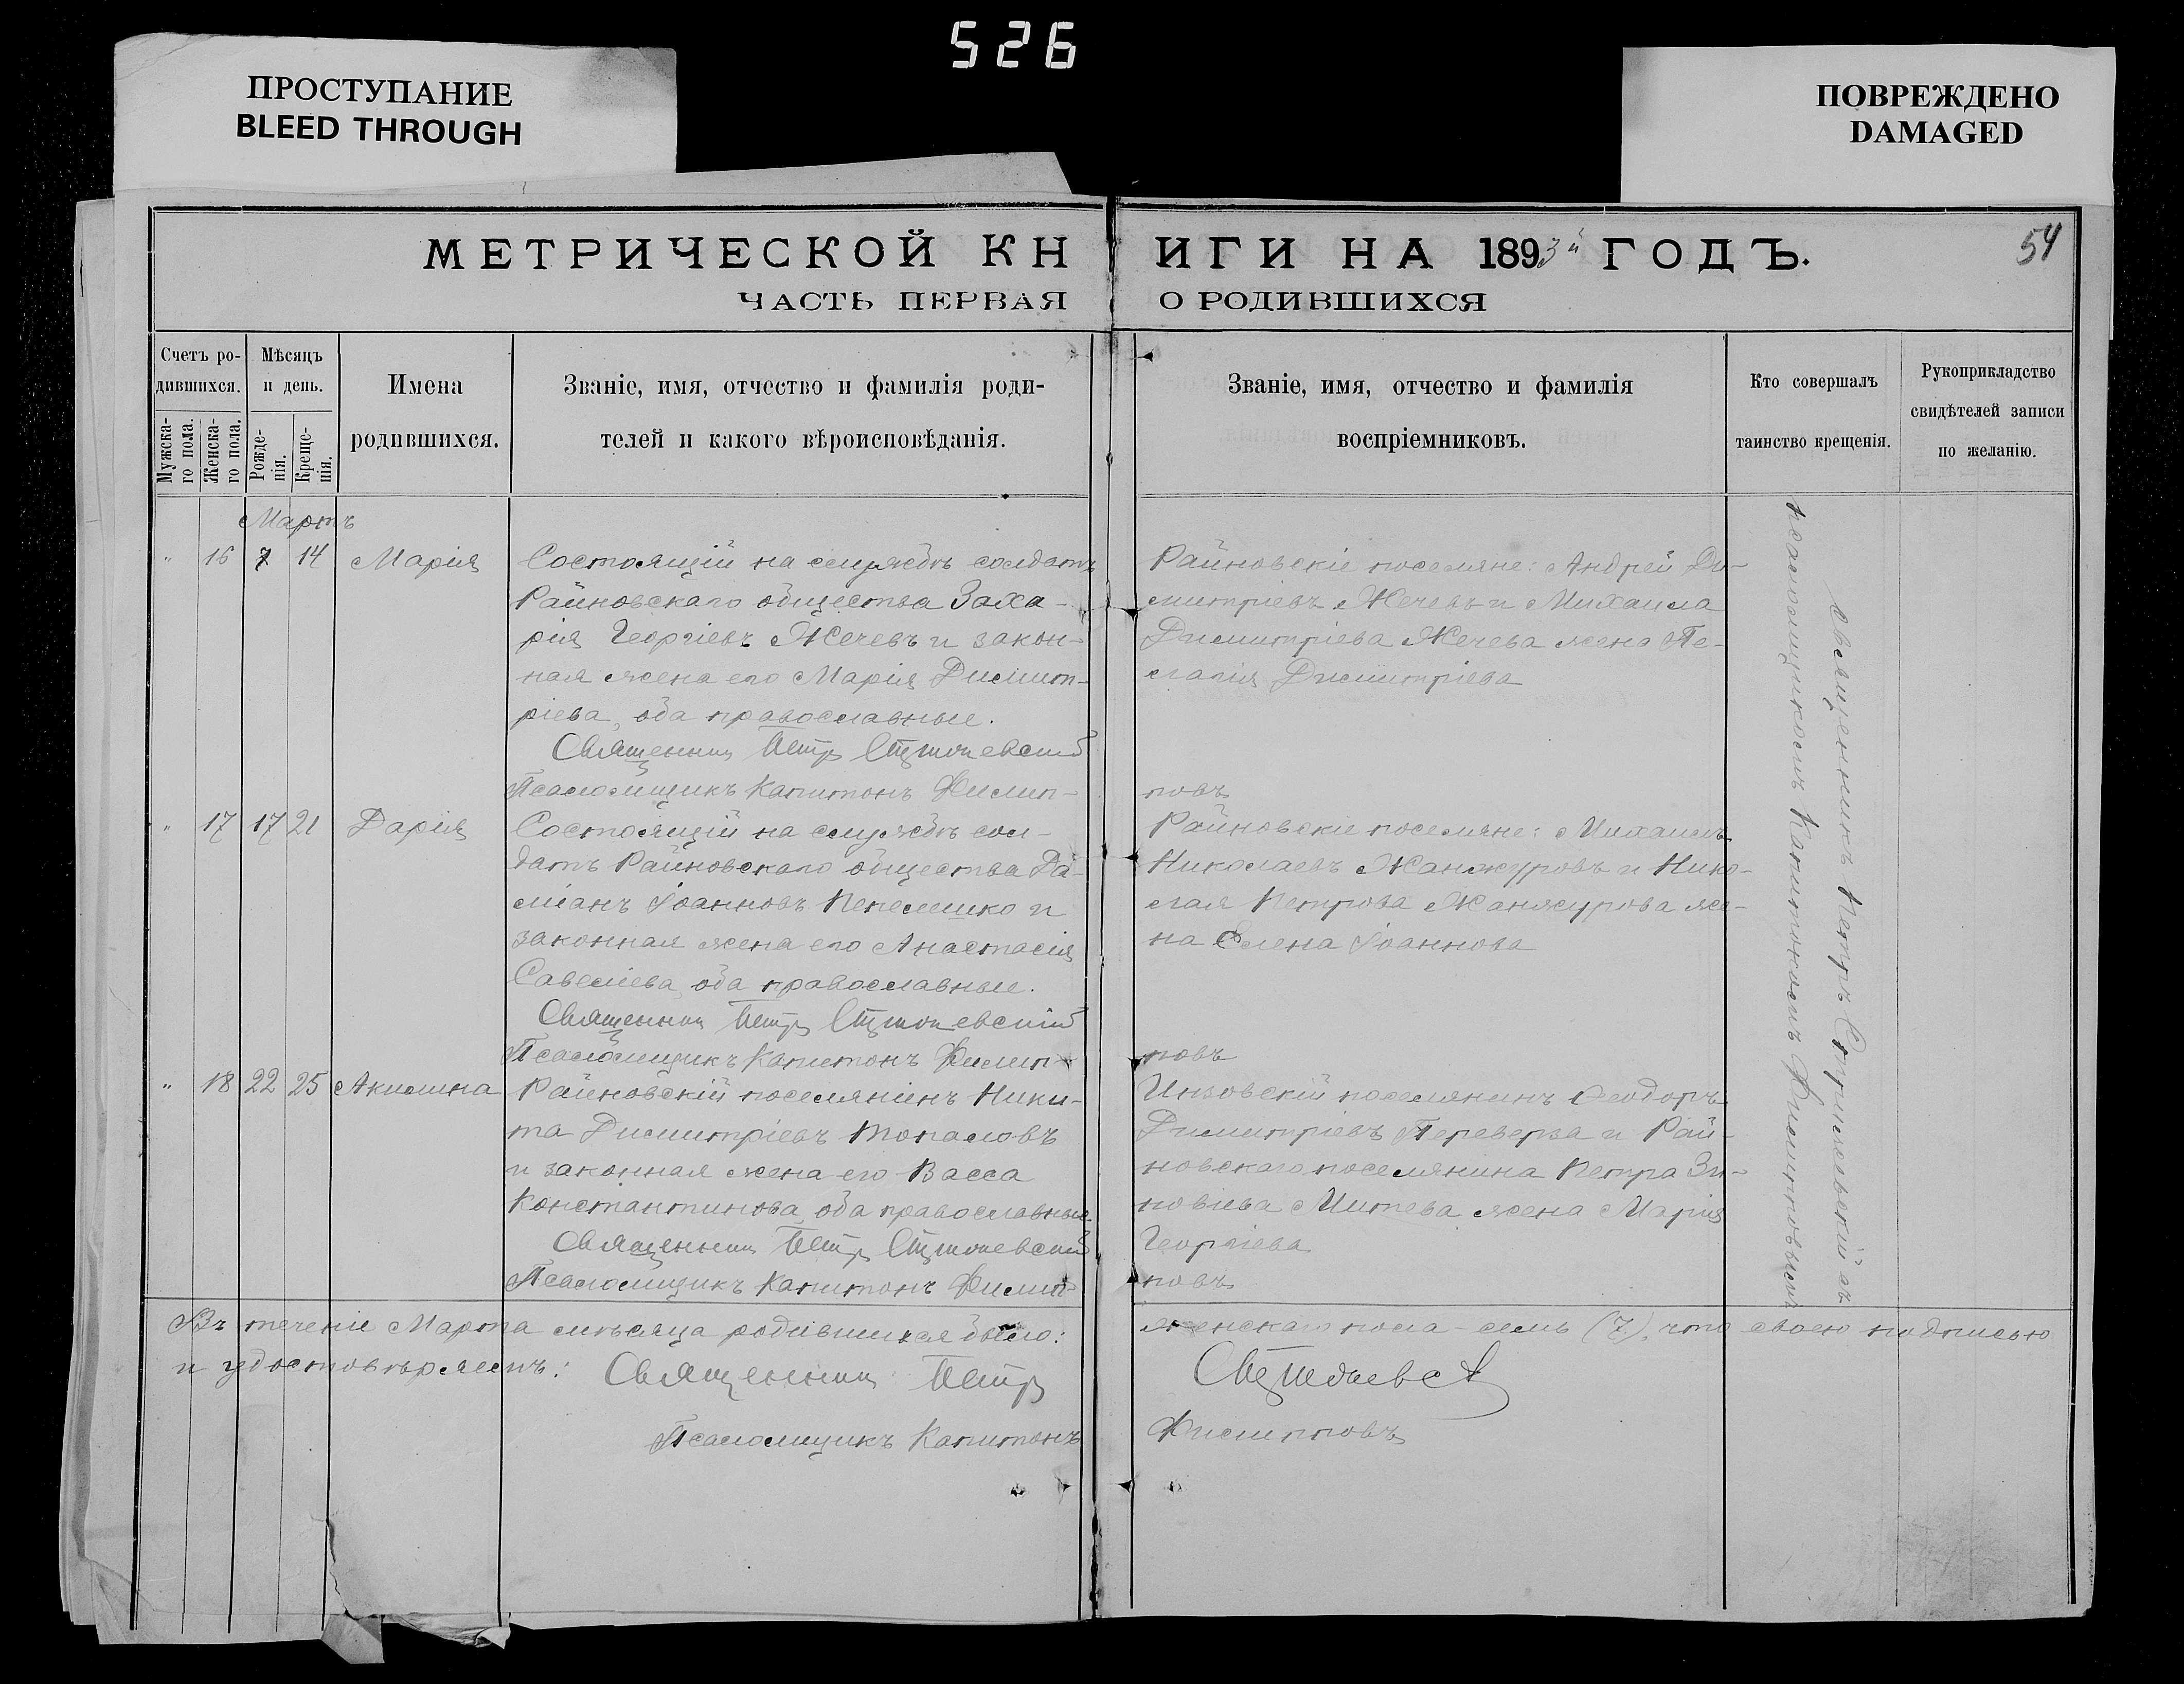 526
ПРОСТУПАНИЕ
BLEED THROUGH
ПОВРЕЖДЕНО
DAMAGED
54
МЕТРИЧЕСКОЙ КНИГИ НА 1893й ГОДЪ.
ЧАСТЬ ПЕРВАЯ О РОДИВШИХСЯ
Счетъ ро-
дившихся.
Мужска-
го пола.
Женска-
го пола.
Мѣсяцъ
и день.
Рожде-
нія.
Креще-
нія.
Имена
родившихся.
Званіе, имя, отчество и фамилія роди-
телей и какого вѣроисповѣданія.
Званіе, имя, отчество и фамилія
воспріемниковъ.
Кто совершалъ
таинство крещенія.
Рукоприкладство
свидѣтелей записи
по желанію.
Мартъ
" 16 7 14 Марія
Состоящій на службѣ солдатъ
Райновскаго общества Заха-
рія Георгіевъ Жечевъ и закон-
ная жена его Марія Димит-
ріева, оба православные.
Священник Петр
Псаломщикъ Капитонъ Филип-
Райновскіе поселяне: Андрей Ди-
митріевъ Жечевъ и Михаила
Димитріева Жечева жена Пе-
лагія Димитріева
повъ
" 17 17 21 Дарія
Состоящій на службѣ сол-
датъ Райновскаго общества Да-
міанъ Іоанновъ Пепелешко и
законная жена его Анастасія
Савеліева, оба православные.
Священник Петр
Псаломщикъ Капитонъ Филип-
Райновскіе поселяне: Михаилъ
Николаевъ Жанжуровъ и Нико-
лая Петрова Жанжурова же-
на Елена Іоаннова
повъ
" 18 22 25 Акилина
Райновскій поселянинъ Ники-
та Димитріевъ Топаловъ
и законная жена его Васса
Константинова, оба православные.
Священник Петр
Псаломщикъ Капитонъ Филип-
Инзовскій поселянинъ Ѳеодоръ
Димитріевъ Переверза и Рай-
новскаго поселянина Петра Зи-
новіева Митева жена Марія
Георгіева
повъ
Священникъ Петръ съ
псаломщикомъ Капитономъ Филипповымъ
Въ теченіе Марта мѣсяца родившихся было: женскаго пола - семь (7), что своею подписью
и удостовѣряемъ: Священник Петр
Псаломщикъ Капитонъ Филипповъ